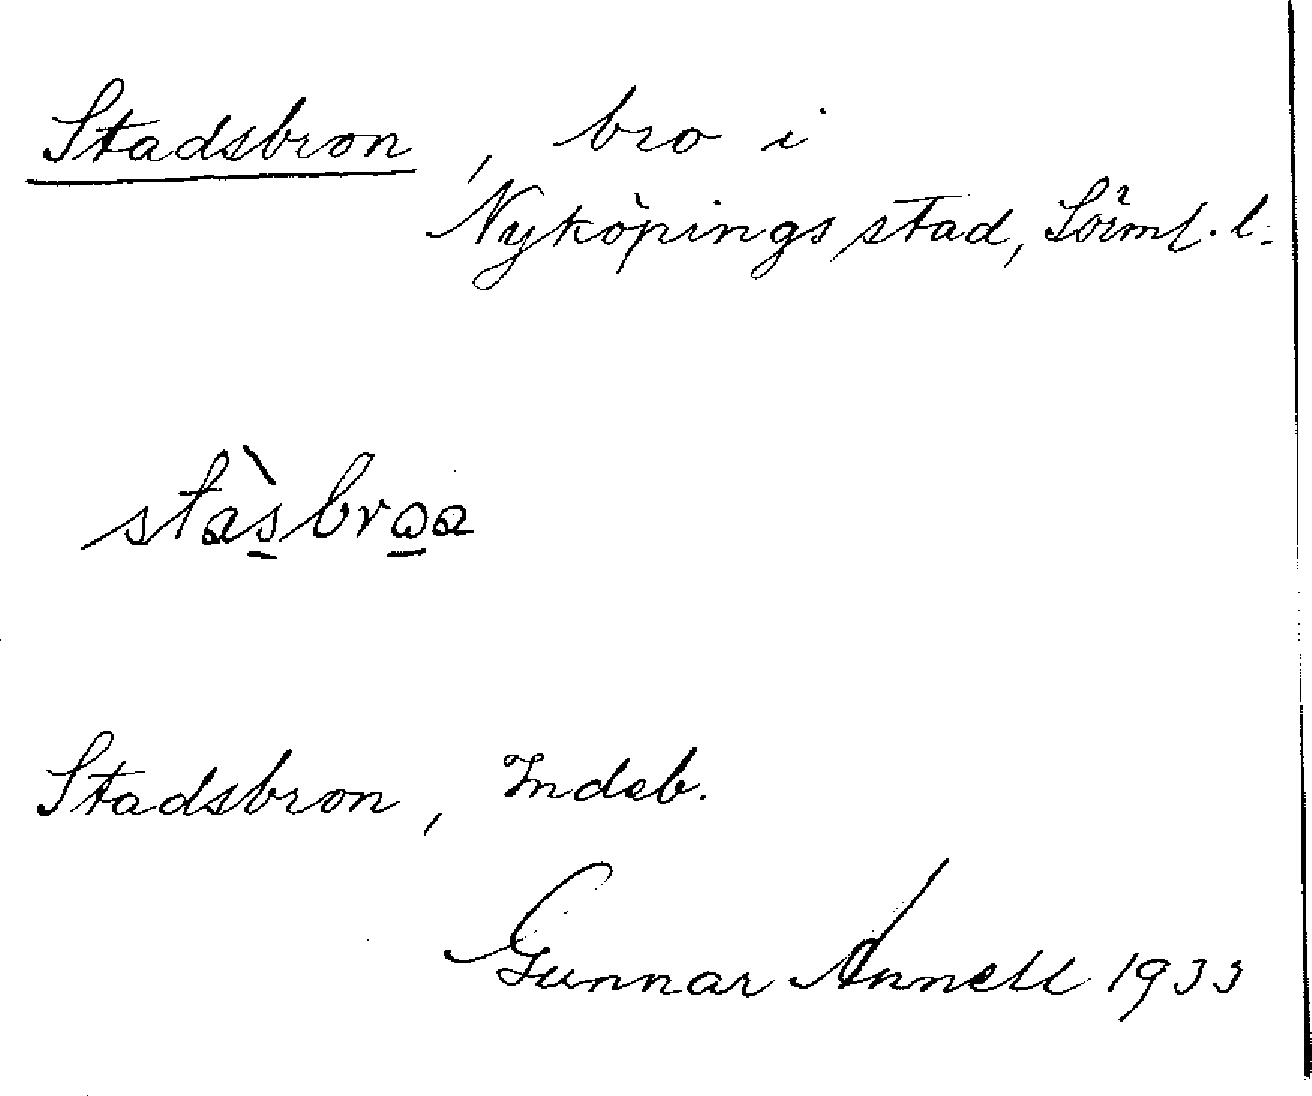 Stadsbron, bro i
Nyköpings stad, Söiml. l.
stàsbroa
Stadsbron, Indeb.
Gunnar Annell 1933